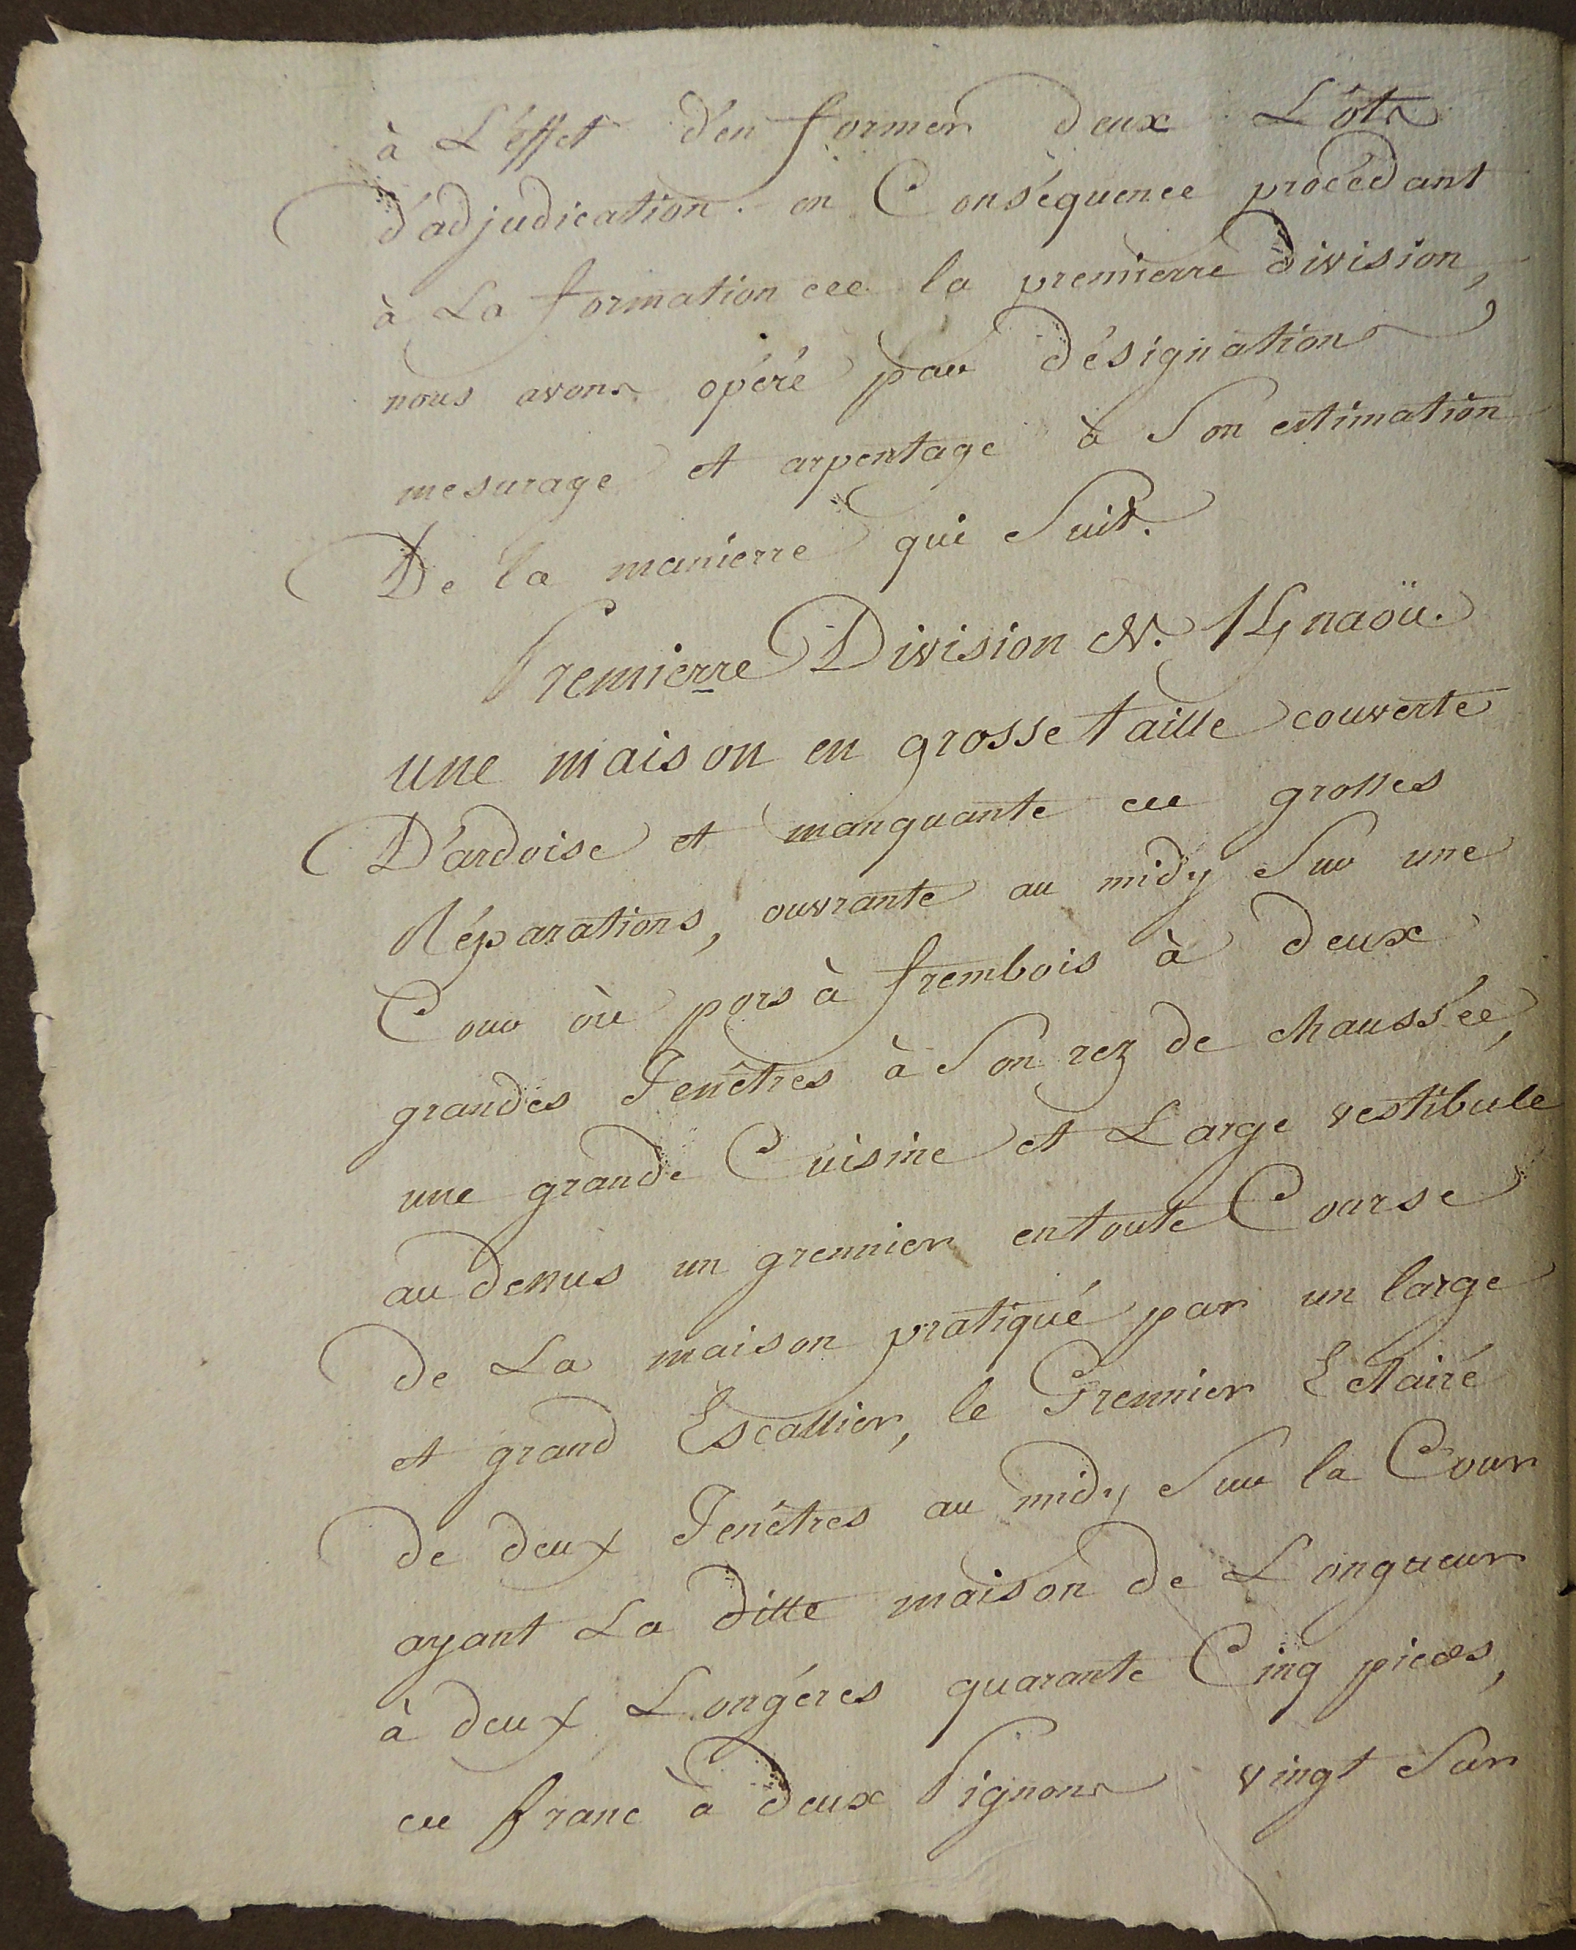 à L'éffet d'en former deux Lots
d'adjudication. en Conséquence procédant
à La formation de la premierre division,
nous avons opéré par désignation
mesurage et arpentage à Son estimation
De la manierre qui Suit.
Premierre Division N. 1
une maison en grosse taille couverte
D'ardoise et manquante de grosses
Réparations, ouvrante au midy Sur une
Cour où pors à frembois à deux
grandes Fenêtres à Son rez de chaussée,
une grande Cuisine et Large vestibule
au dessus un grennier en toute Course
de La maison pratiqué par un large
et grand Escallier, le Grennier Eclairé
de deux Fenêtres au midy Sur la Cour
ayant La ditte maison de Longueur
à deux Longéres quarante Cinq pieds,
de franc à deux Pignons vingt Sur